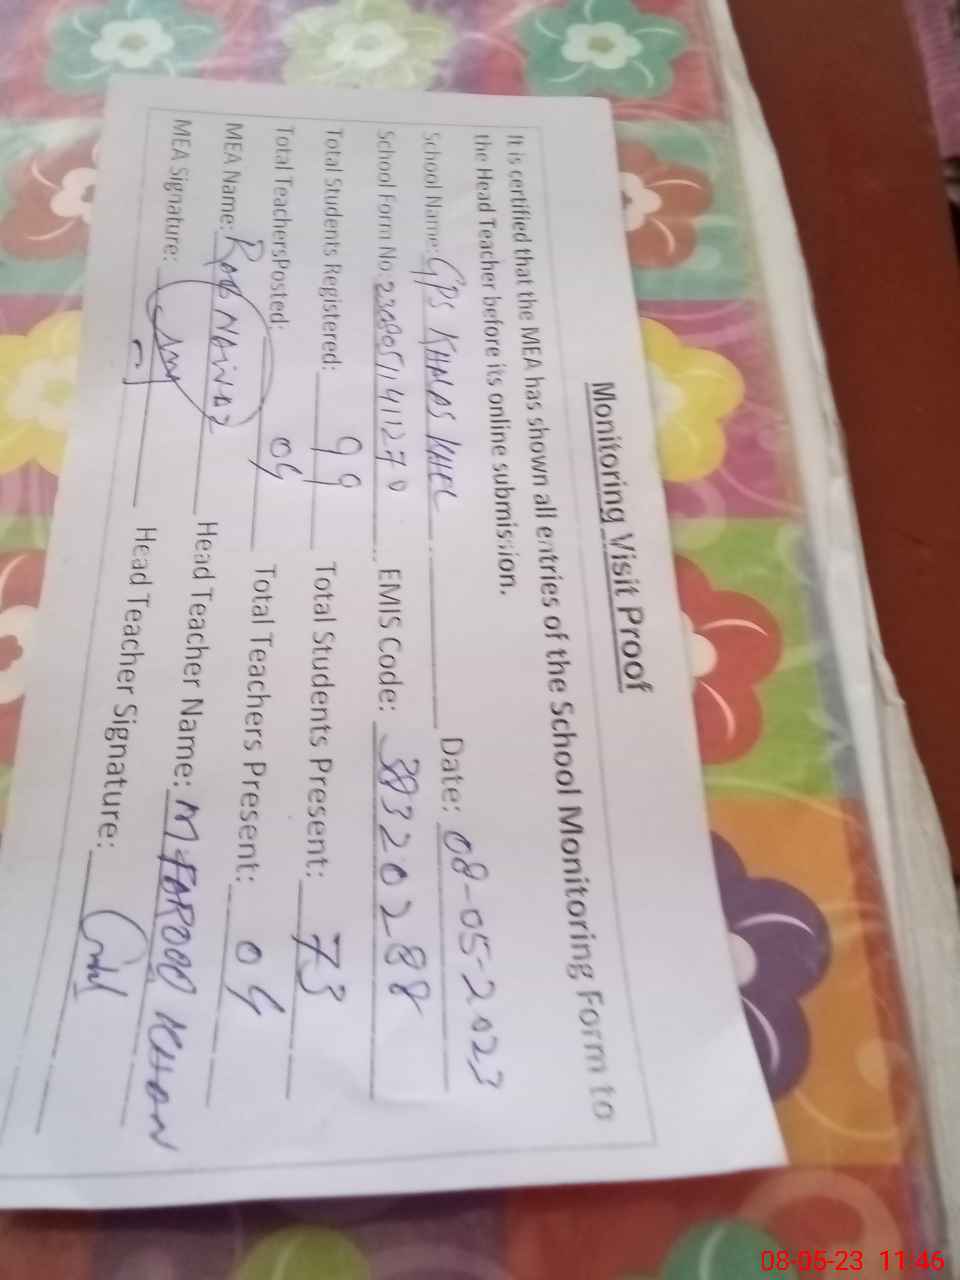 Monitoring Visit Proof
It is certified that the MEA has shown all entries of the School Monitoring Form to
the Head Teacher before its online submission.
School Name: GPS KHAAS KHEL Date: 08-05-2023
School Form No: EMIS Code: 38320288
Total Students Registered: 99 Total Students Present: 73
Total TeachersPosted: 04 Total Teachers Present: 04
MEA Name: Rab NAWAZ Head Teacher Name: M FAROOQ KHAN
MEA Signature: Head Teacher Signature:
08-05-23 11:46